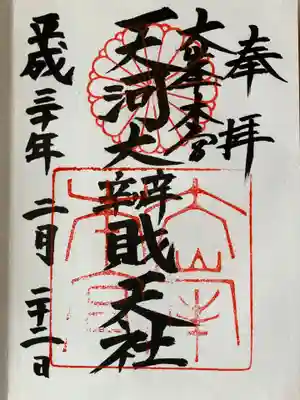 奉拝
大峯本宮
天河大辨財天社
平成三十年 二月 二十二日